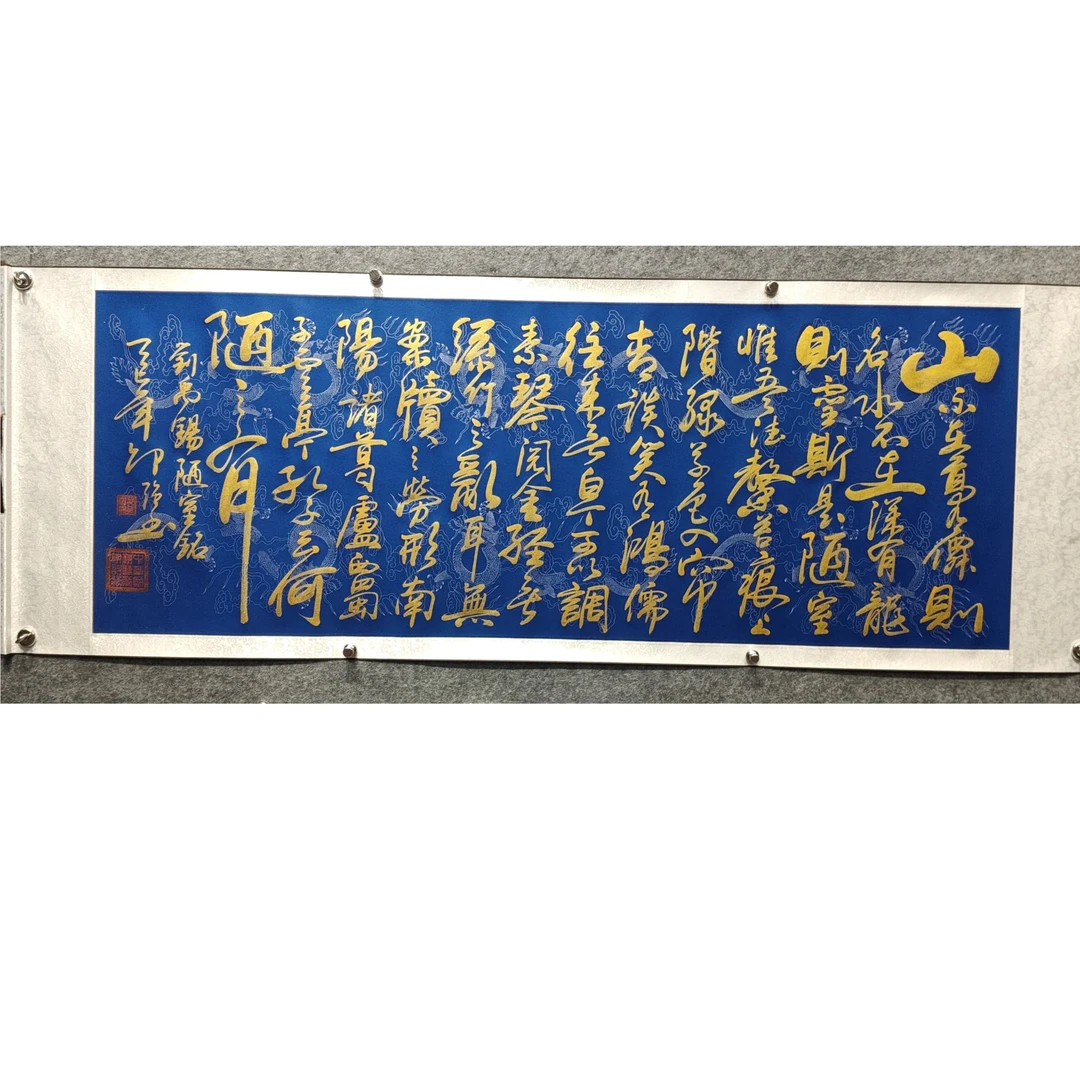 山不在高有僊則
名水不在深有龍
則靈斯是陋室
惟吾德馨苔痕上
階綠草色入帘
青談笑有鴻儒
往来无白丁可以調
素琴閱金經无
絲竹之亂耳無
案牘之勞形南
陽諸葛盧西蜀
子雲亭孔子云何
陋之有
劉禹錫陋室銘
乙巳年